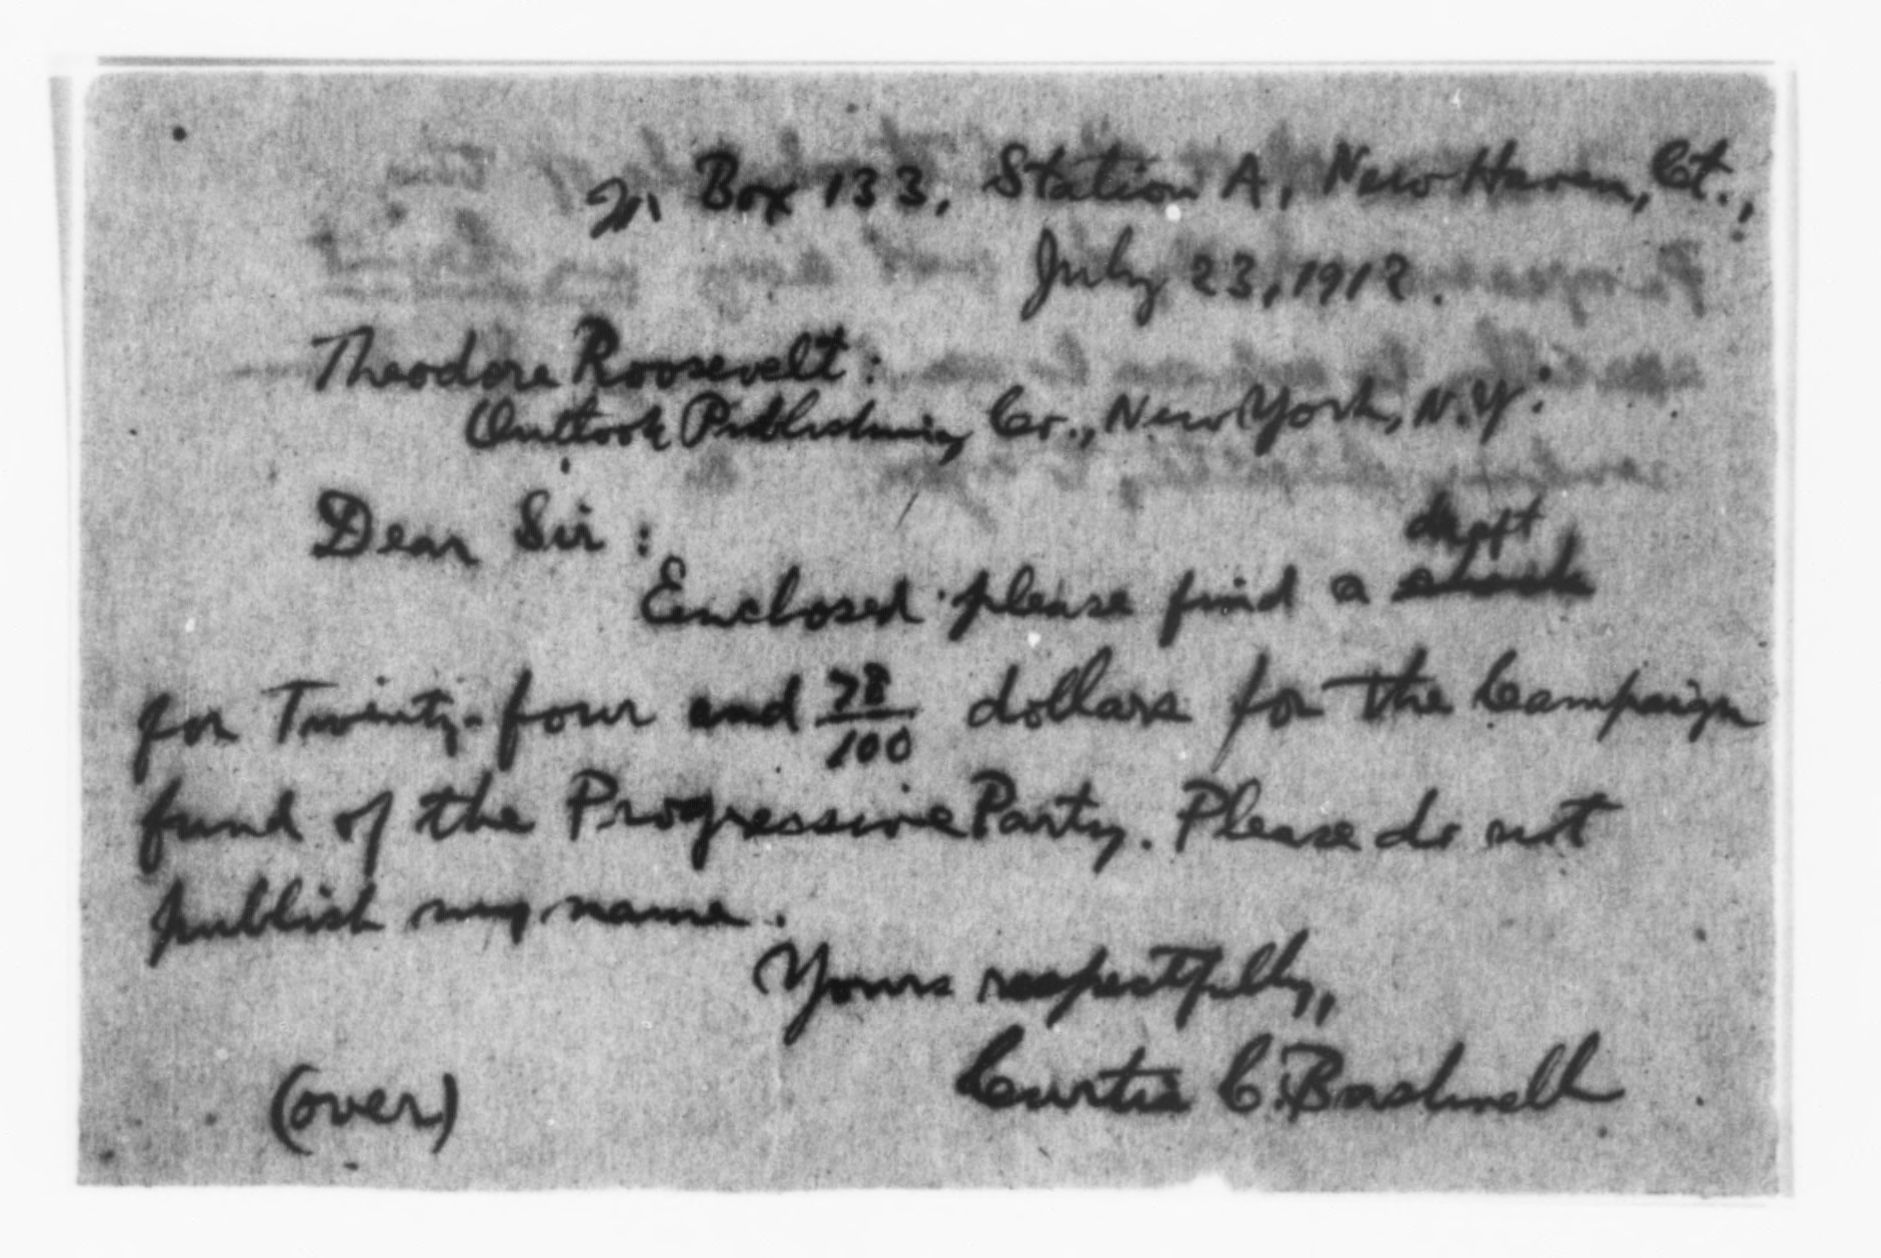 Box 133, Station A, New Haven, Ct.,
July 23, 1912.
Theodore Roosevelt:
Outlook Publishing Co., New York, N.Y.:
Dear Sir:
draft
Enclosed please find a check
for Twenty-four and 78/100 dollars for the Campaign
fund of the Progressive Party. Please do not
publish my name.
Yours respectfully,
Curtis C. Bushnell
(over)